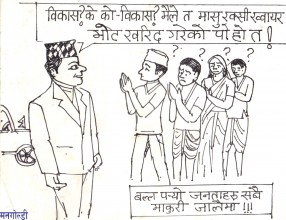 विकास? के को-विकास? मैले त मासु रक्सी ख्वायर
भोट खरिद गरेको पो हो त!
बल्ल पर्‍यो जनताहरु सबै
माकुरी जालैमा!!!
मनगोल्डी